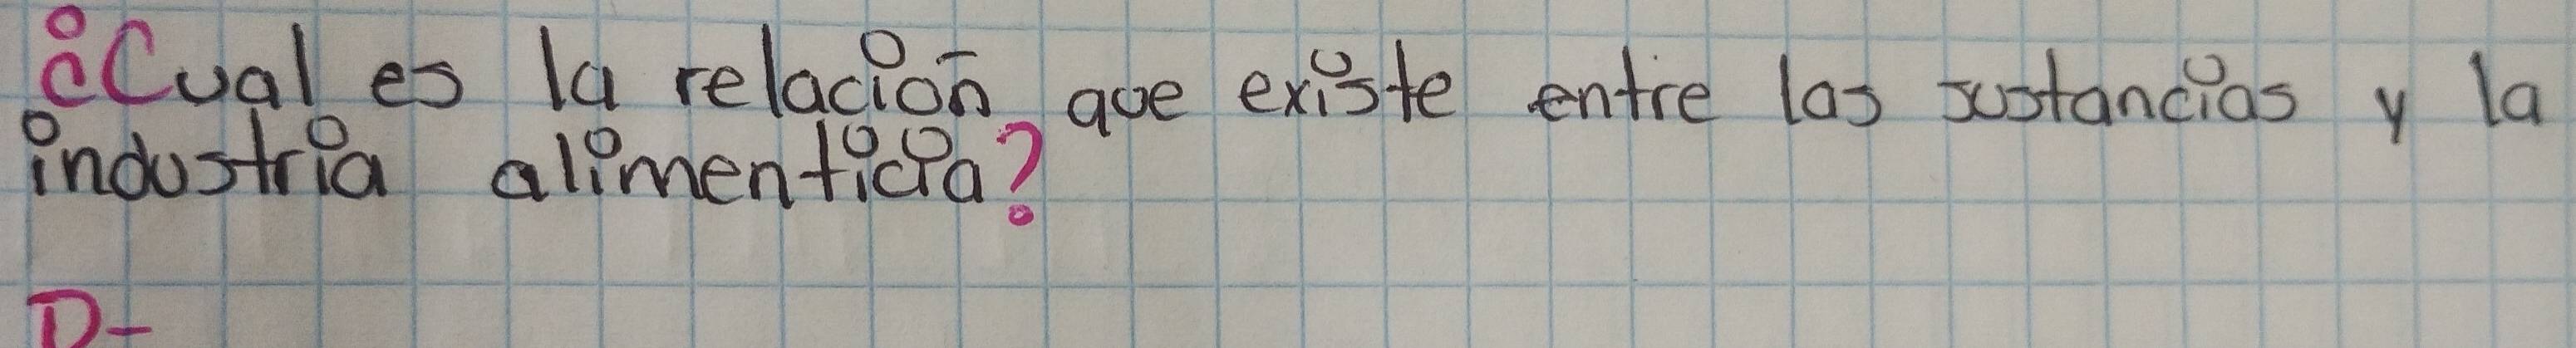 ¿Cual es la relación que existe entre las sustancias y la
industria alimenticia?
D-